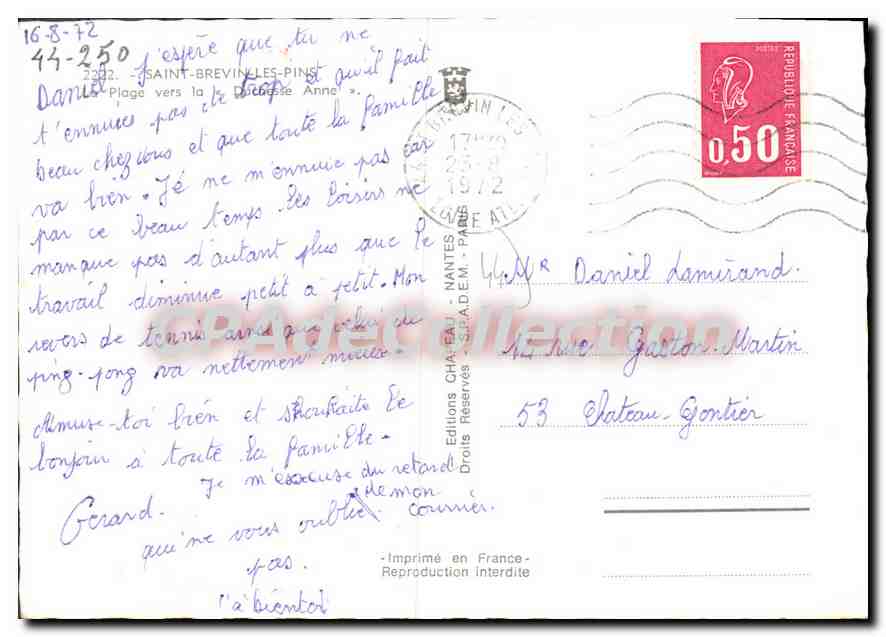 16-8-72
44-250
2222. - SAINT-BREVIN-LES-PINS
La Plage vers la « Duchesse Anne ».
Daniel J'espère que tu ne
t'ennuies pas de trop et qu'il fait
beau chez vous et que toute la famille
va bien. Je ne m'ennuie pas car
par ce beau temps les loisirs ne
manque pas d'autant plus que le
travail diminue petit à petit. Mon
revers de tennis ainsi que celui de
ping-pong va nettement mieux.
Amuse-toi bien et souhaite le
bonjour à toute la famille.
Je m'excuse du retard
de mon
courrier.
Gérard.
qui ne vous oublie
pas.
à bientôt
ST BREVIN LES
17H
1972
LOIRE ATL.
POSTES
REPUBLIQUE FRANÇAISE
0,50
44 Mr Daniel Lamirand.
14 rue Gaston-Martin
53 Chateau-Gontier
Editions CHAPEAU - NANTES
Droits Réservés - S.P.A.D.E.M. - PARIS
-Imprimé en France-
Reproduction interdite
CPAdeCollection